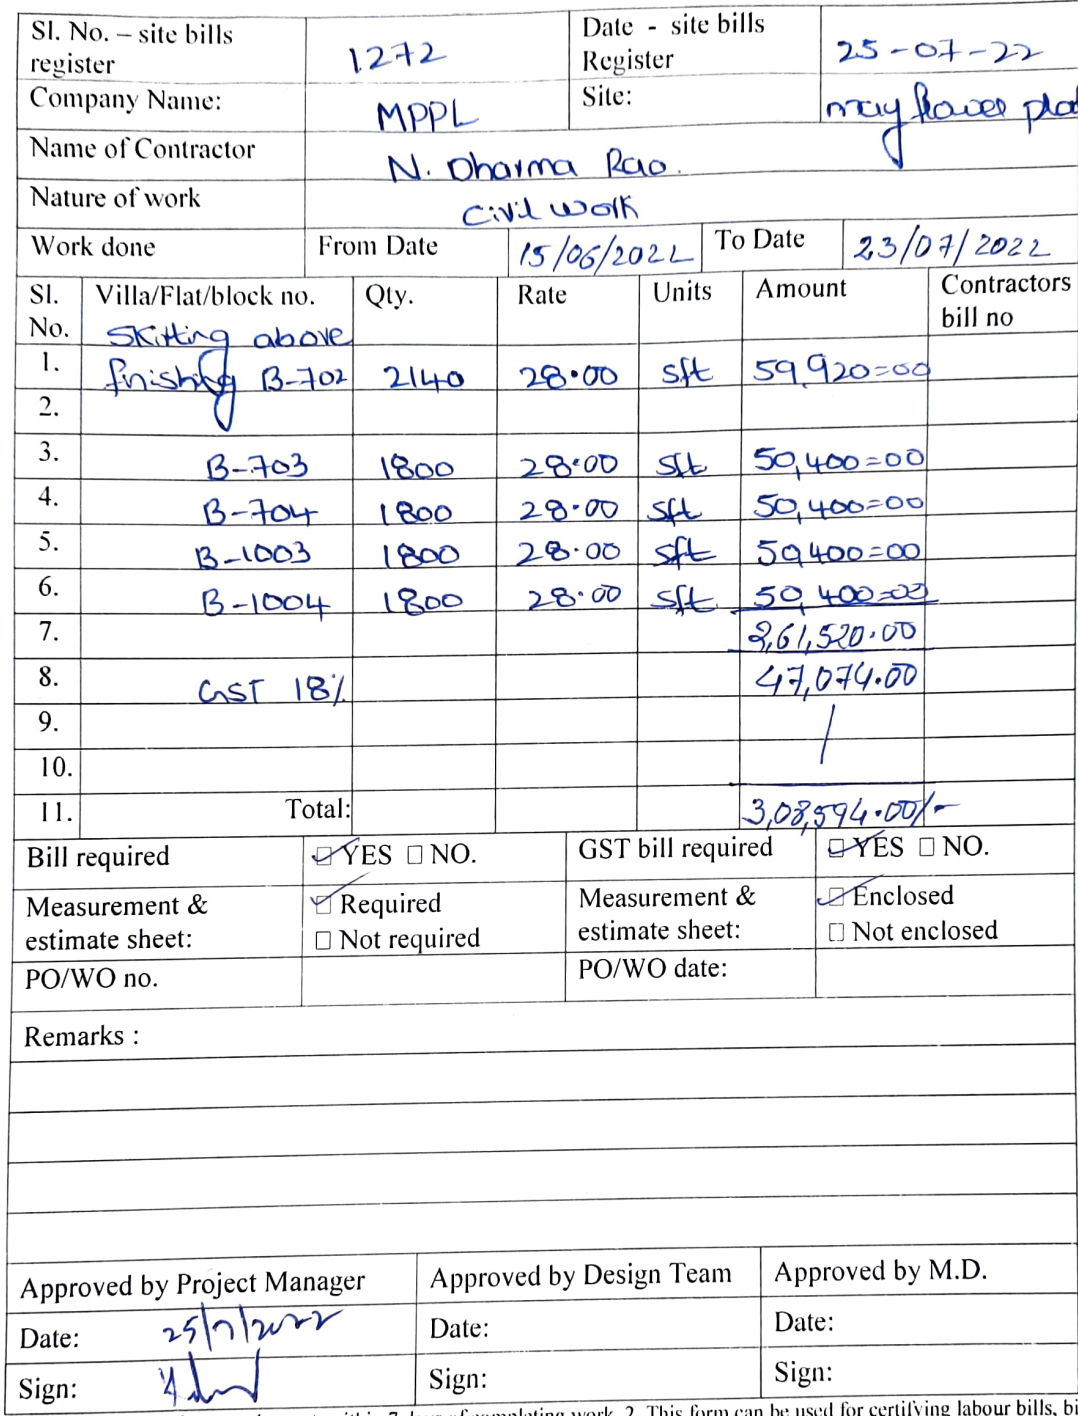 Sl. No. – site bills register 1272 Date - site bills Register 25-07-22
Company Name: MPPL Site: may flower plat
Name of Contractor N. Dharma Rao.
Nature of work Civil work
Work done From Date 15/06/2022 To Date 23/07/2022
Sl. No. Villa/Flat/block no. Qty. Rate Units Amount Contractors bill no
Skitting above
1. finishing B-702 2140 28.00 sft 59,920=00
2.
3. B-703 1800 28.00 sft 50,400=00
4. B-704 1800 28.00 sft 50,400=00
5. B-1003 1800 28.00 sft 50,400=00
6. B-1004 1800 28.00 sft 50,400=00
7. 2,61,520.00
8. GST 18% 47,074.00
9.
10.
11. Total: 3,08,594.00/-
Bill required YES NO. GST bill required YES NO.
Measurement & estimate sheet: Required Not required Measurement & estimate sheet: Enclosed Not enclosed
PO/WO no. PO/WO date:
Remarks :
Approved by Project Manager Approved by Design Team Approved by M.D.
Date: 25/7/2022 Date: Date:
Sign: Sign: Sign:
completing work. 2. This form can be used for certifying labour bills, bi